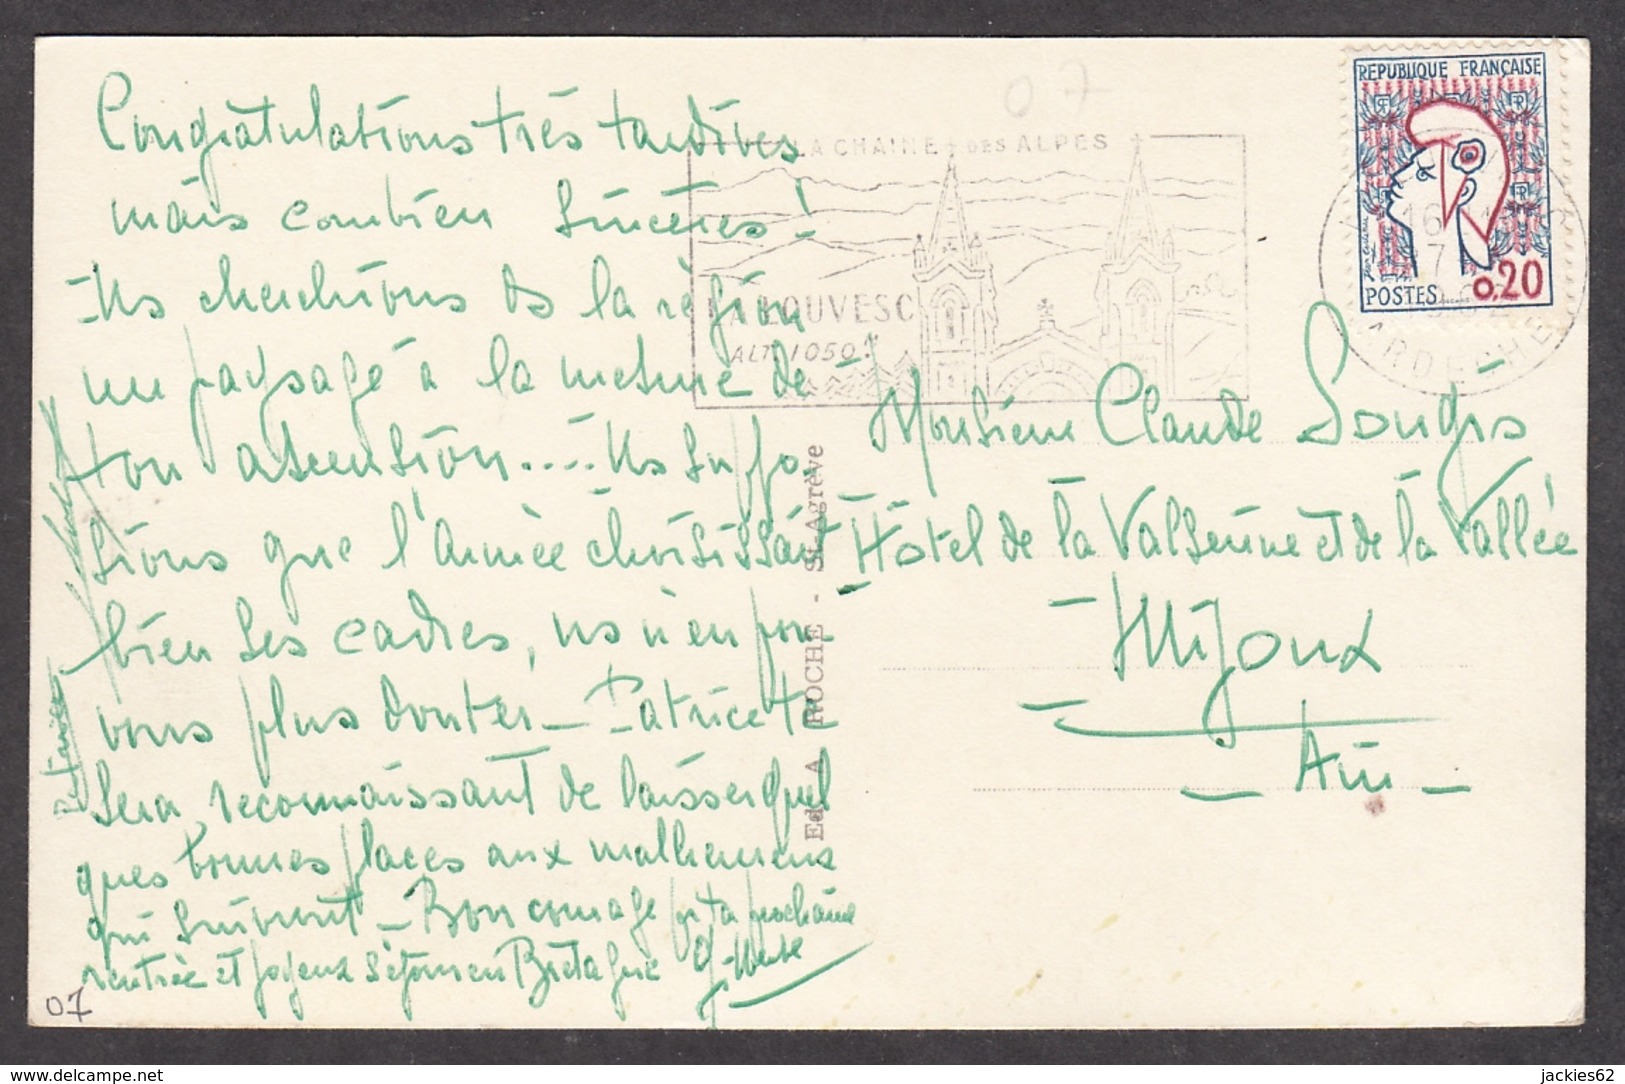 Congratulations très tardives
mais combien sincères!
Ns cherchions ds la région
un paysage à la mesure de
ton ascension.... Ns suppo
sions que l'Armée choisissant
bien ses cadres, ns n'en pou
vons plus douter_ Patrice te
sera reconnaissant de laisser quel
ques bonnes places aux malheureux
qui suivront_ Bon courage pr ta prochaine
rentrée et joyeux séjour en Bretagne
07
Patrice
07
LA CHAINE DES ALPES
LALOUVESC
ALT. 1050 m
Ed. A. ROCHE - St-Agrève
REPUBLIQUE FRANÇAISE
RF
POSTES 0,20
16
7
ARDECHE
Monsieur Claude
Hôtel de la Valserine et de la Vallée
Mijoux
_ Ain _
delcampe.net
jackies62